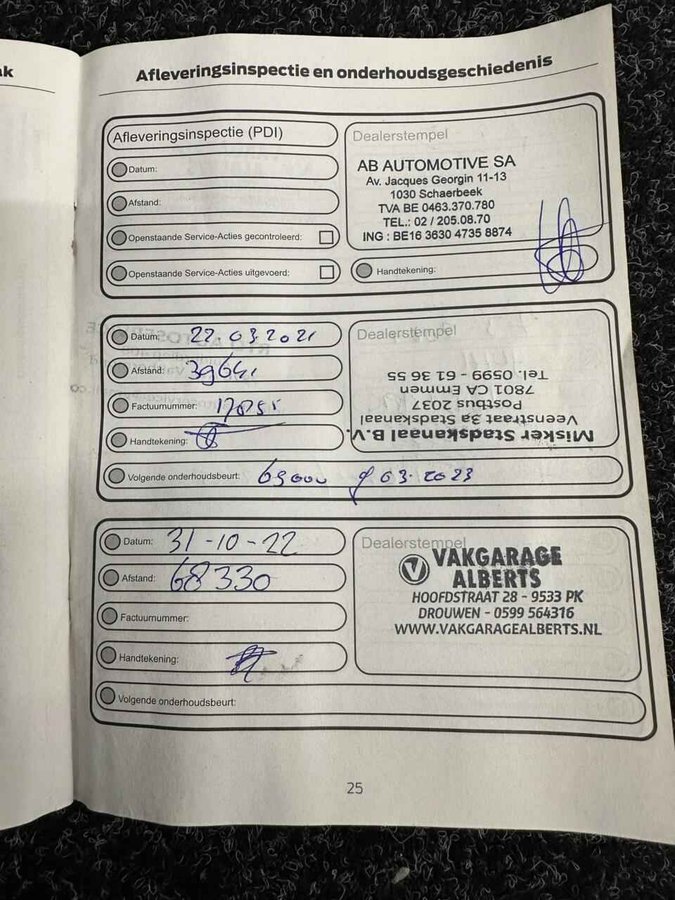 ak
Afleveringsinspectie en onderhoudsgeschiedenis
Afleveringsinspectie (PDI)
Datum:
Afstand:
Openstaande Service-Acties gecontroleerd:
Openstaande Service-Acties uitgevoerd:
Dealerstempel
AB AUTOMOTIVE SA
Av. Jacques Georgin 11-13
1030 Schaerbeek
TVA BE 0463.370.780
TEL.: 02 / 205.08.70
ING : BE16 3630 4735 8874
Handtekening:
Datum: 22.03.2021
Afstand:
Factuurnummer:
Handtekening:
Dealerstempel
Misker Stadskanaal B.V.
Veenstraat 3a Stadskanaal
Postbus 2037
7801 CA Emmen
Tel. 0599 - 61 36 55
Volgende onderhoudsbeurt: 69000 of 03.2023
Datum: 31-10-22
Afstand: 68330
Factuurnummer:
Handtekening:
Dealerstempel
VAKGARAGE
ALBERTS
HOOFDSTRAAT 28 - 9533 PK
DROUWEN - 0599 564316
WWW.VAKGARAGEALBERTS.NL
Volgende onderhoudsbeurt:
25